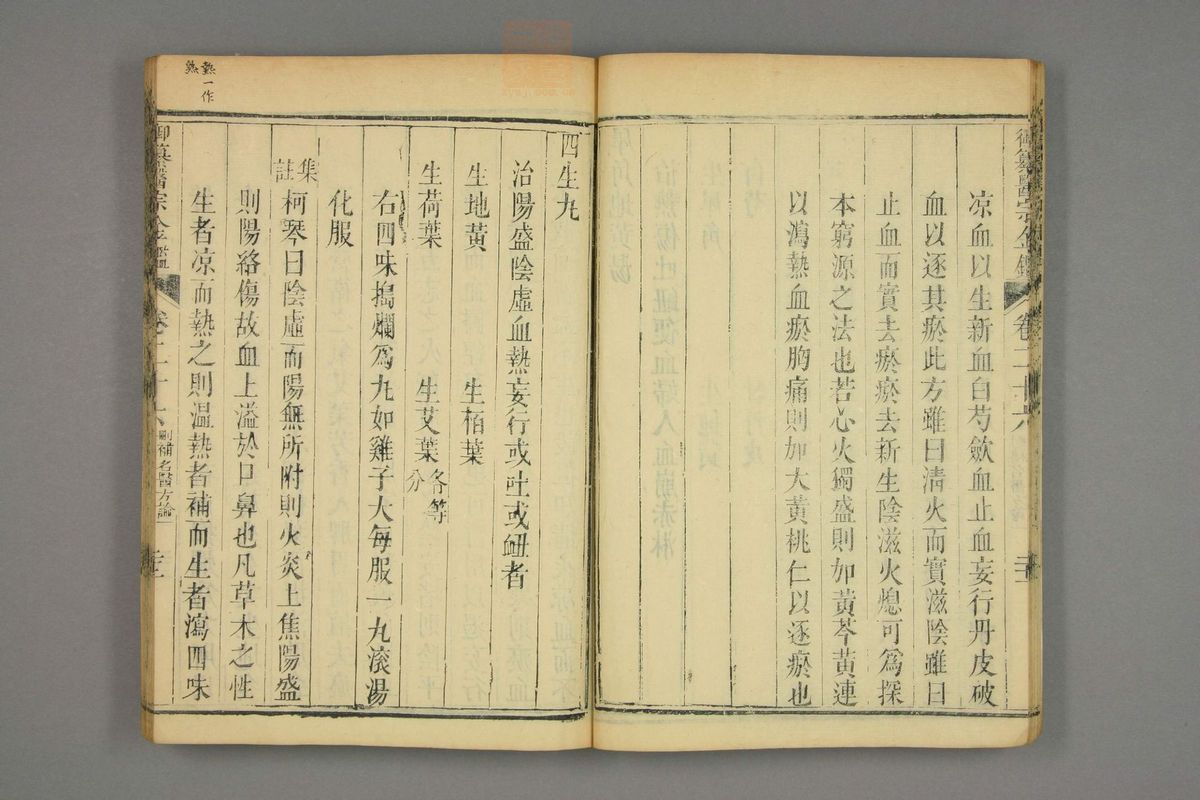 御纂醫宗金鑑 卷二十六
凉血以生新血白芍斂血止血妄行丹皮破
血以逐其瘀此方雖曰清火而實滋陰雖曰
止血而實去瘀瘀去新生陰滋火熄可爲探
本窮源之法也若心火獨盛則加黃芩黃連
以瀉熱血瘀胸痛則加大黃桃仁以逐瘀也
四生丸
治陽盛陰虛血熱妄行或吐或衄者
生地黃 生栢葉
生荷葉 生艾葉各等分
右四味搗爛爲丸如雞子大每服一丸滾湯
化服
集註柯琴曰陰虛而陽無所附則火炎上焦陽盛
則陽絡傷故血上溢於口鼻也凡草木之性
生者凉而熱之則溫熱者補而生者瀉四味
御纂醫宗金鑑 卷二十六 刪補名醫方論
熱一作